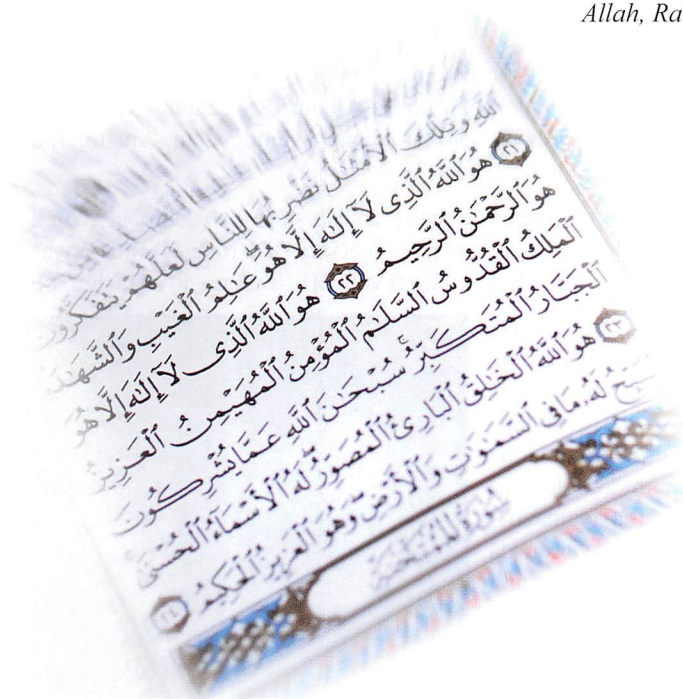 Allah, Ra
ٱللَّهِ وَتِلْكَ ٱلْأَمْثَٰلُ نَضْرِبُهَا لِلنَّاسِ لَعَلَّهُمْ يَتَفَكَّرُونَ
٢١ هُوَ ٱللَّهُ ٱلَّذِى لَآ إِلَٰهَ إِلَّا هُوَ عَٰلِمُ ٱلْغَيْبِ وَٱلشَّهَٰدَ
هُوَ ٱلرَّحْمَٰنُ ٱلرَّحِيمُ ٢٢ هُوَ ٱللَّهُ ٱلَّذِى لَآ إِلَٰهَ إِلَّا هُوَ
ٱلْمَلِكُ ٱلْقُدُّوسُ ٱلسَّلَٰمُ ٱلْمُؤْمِنُ ٱلْمُهَيْمِنُ ٱلْعَزِيزُ
ٱلْجَبَّارُ ٱلْمُتَكَبِّرُ سُبْحَٰنَ ٱللَّهِ عَمَّا يُشْرِكُونَ
٢٣ هُوَ ٱللَّهُ ٱلْخَٰلِقُ ٱلْبَارِئُ ٱلْمُصَوِّرُ لَهُ ٱلْأَسْمَآءُ ٱلْحُسْنَىٰ
يُسَبِّحُ لَهُۥ مَا فِى ٱلسَّمَٰوَٰتِ وَٱلْأَرْضِ وَهُوَ ٱلْعَزِيزُ ٱلْحَكِيمُ ٢٤
سُورَةُ المُمْتَحنَةِ